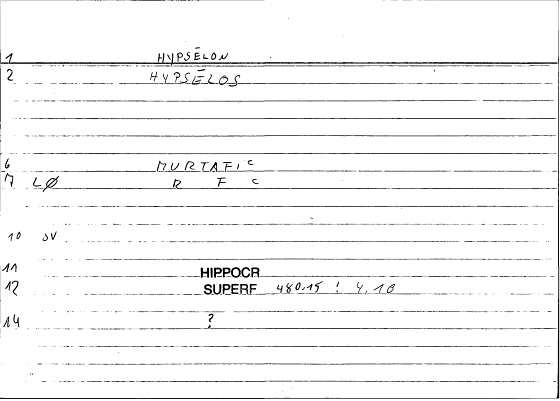 1 HYPSĒLON
2 HYPSĒLOS
6 MURTAFIC
7 LØ R F C
10 SV
11 HIPPOCR
12 SUPERF 480.15 ! 4.10
14 ?